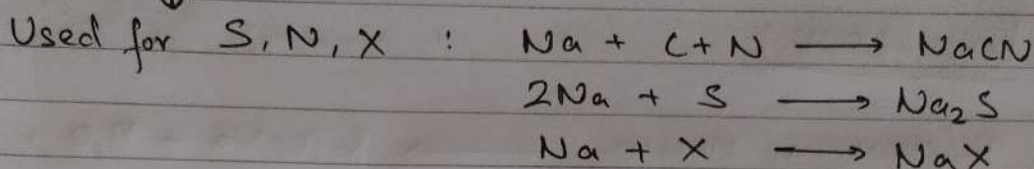 Used for S, N, X : Na + C + N ⟶ NaCN
2Na + S ⟶ Na₂S
Na + X ⟶ NaX